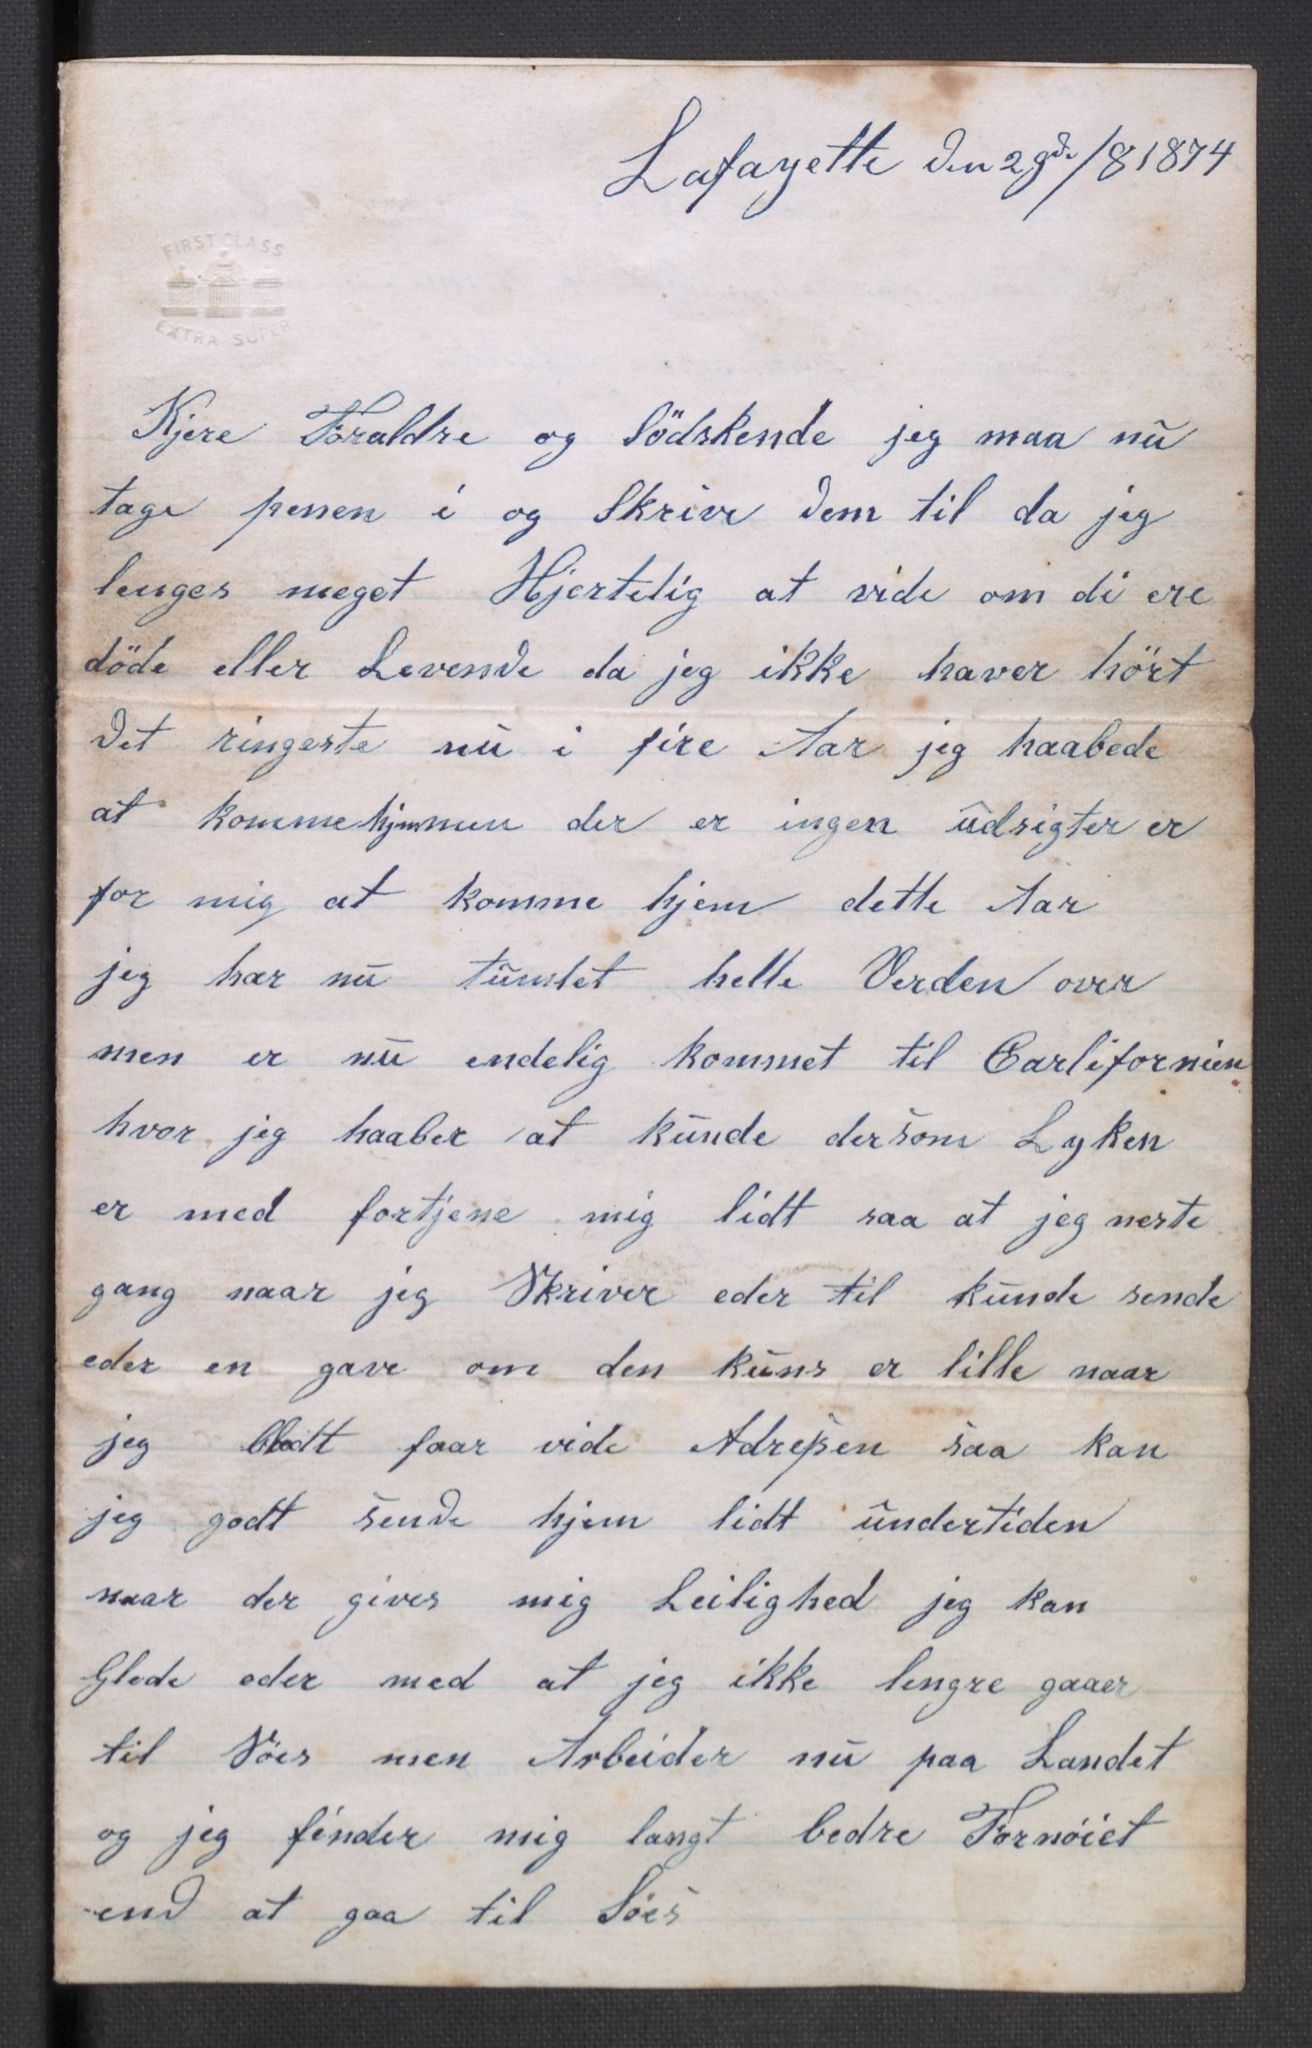 Lafayette den 29de/8 1874
FIRST CLASS
EXTRA SUPER
Kjere Foraldre og Södskende jeg maa nu
tage penen i og Skrive dem til da jeg
lenges meget Hjertelig at vide om di ere
döde eller Levende da jeg ikke haver hört
det ringeste nu i fire Aar jeg haabede
at komme hjem men der er ingen udsigter er
for mig at komme hjem dette Aar
jeg har nu tumlet helle Verden over
men er nu endelig kommet til Carlifornien
hvor jeg haaber at kunde dersom Lyken
er med fortjene mig lidt saa at jeg neste
gang naar jeg Skriver eder til kunde sende
eder en gave om den kuns er lille naar
jeg blodt faar vide Adressen saa kan
jeg godt sende hjem lidt undertiden
naar der gives mig Leilighed jeg kan
Glede eder med at jeg ikke lengre gaaer
til Söes men Arbeider nu paa Landet
og jeg finder mig langt bedre Fornöiet
end at gaa til Söes